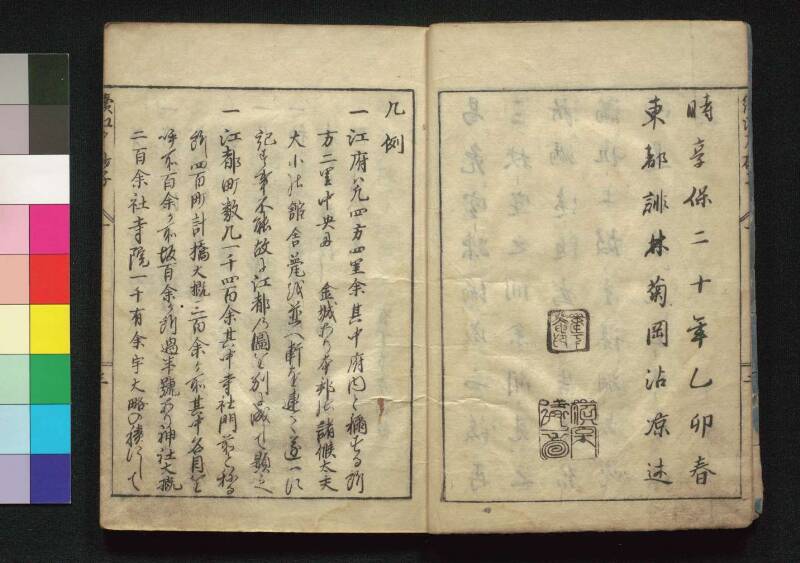 時享保二十年乙卯春
東都誹林菊岡沾凉述
凡例
一江府八凡四方四里余其中府内と稱する所
方二里中央に金城あり本邦の諸候太夫
大小の舘舍甍を並へ軒を連て
記す事不能故に江都の圖を別に成て顯之
一江都町数凡一千四百余其中寺社門前と稱る
所四百町計橋大概三百余ヶ所其中名目を
呼所百余ヶ所坂百余ヶ所過半號あり神社大概
二百余社寺院一千有余宇大略の積にして